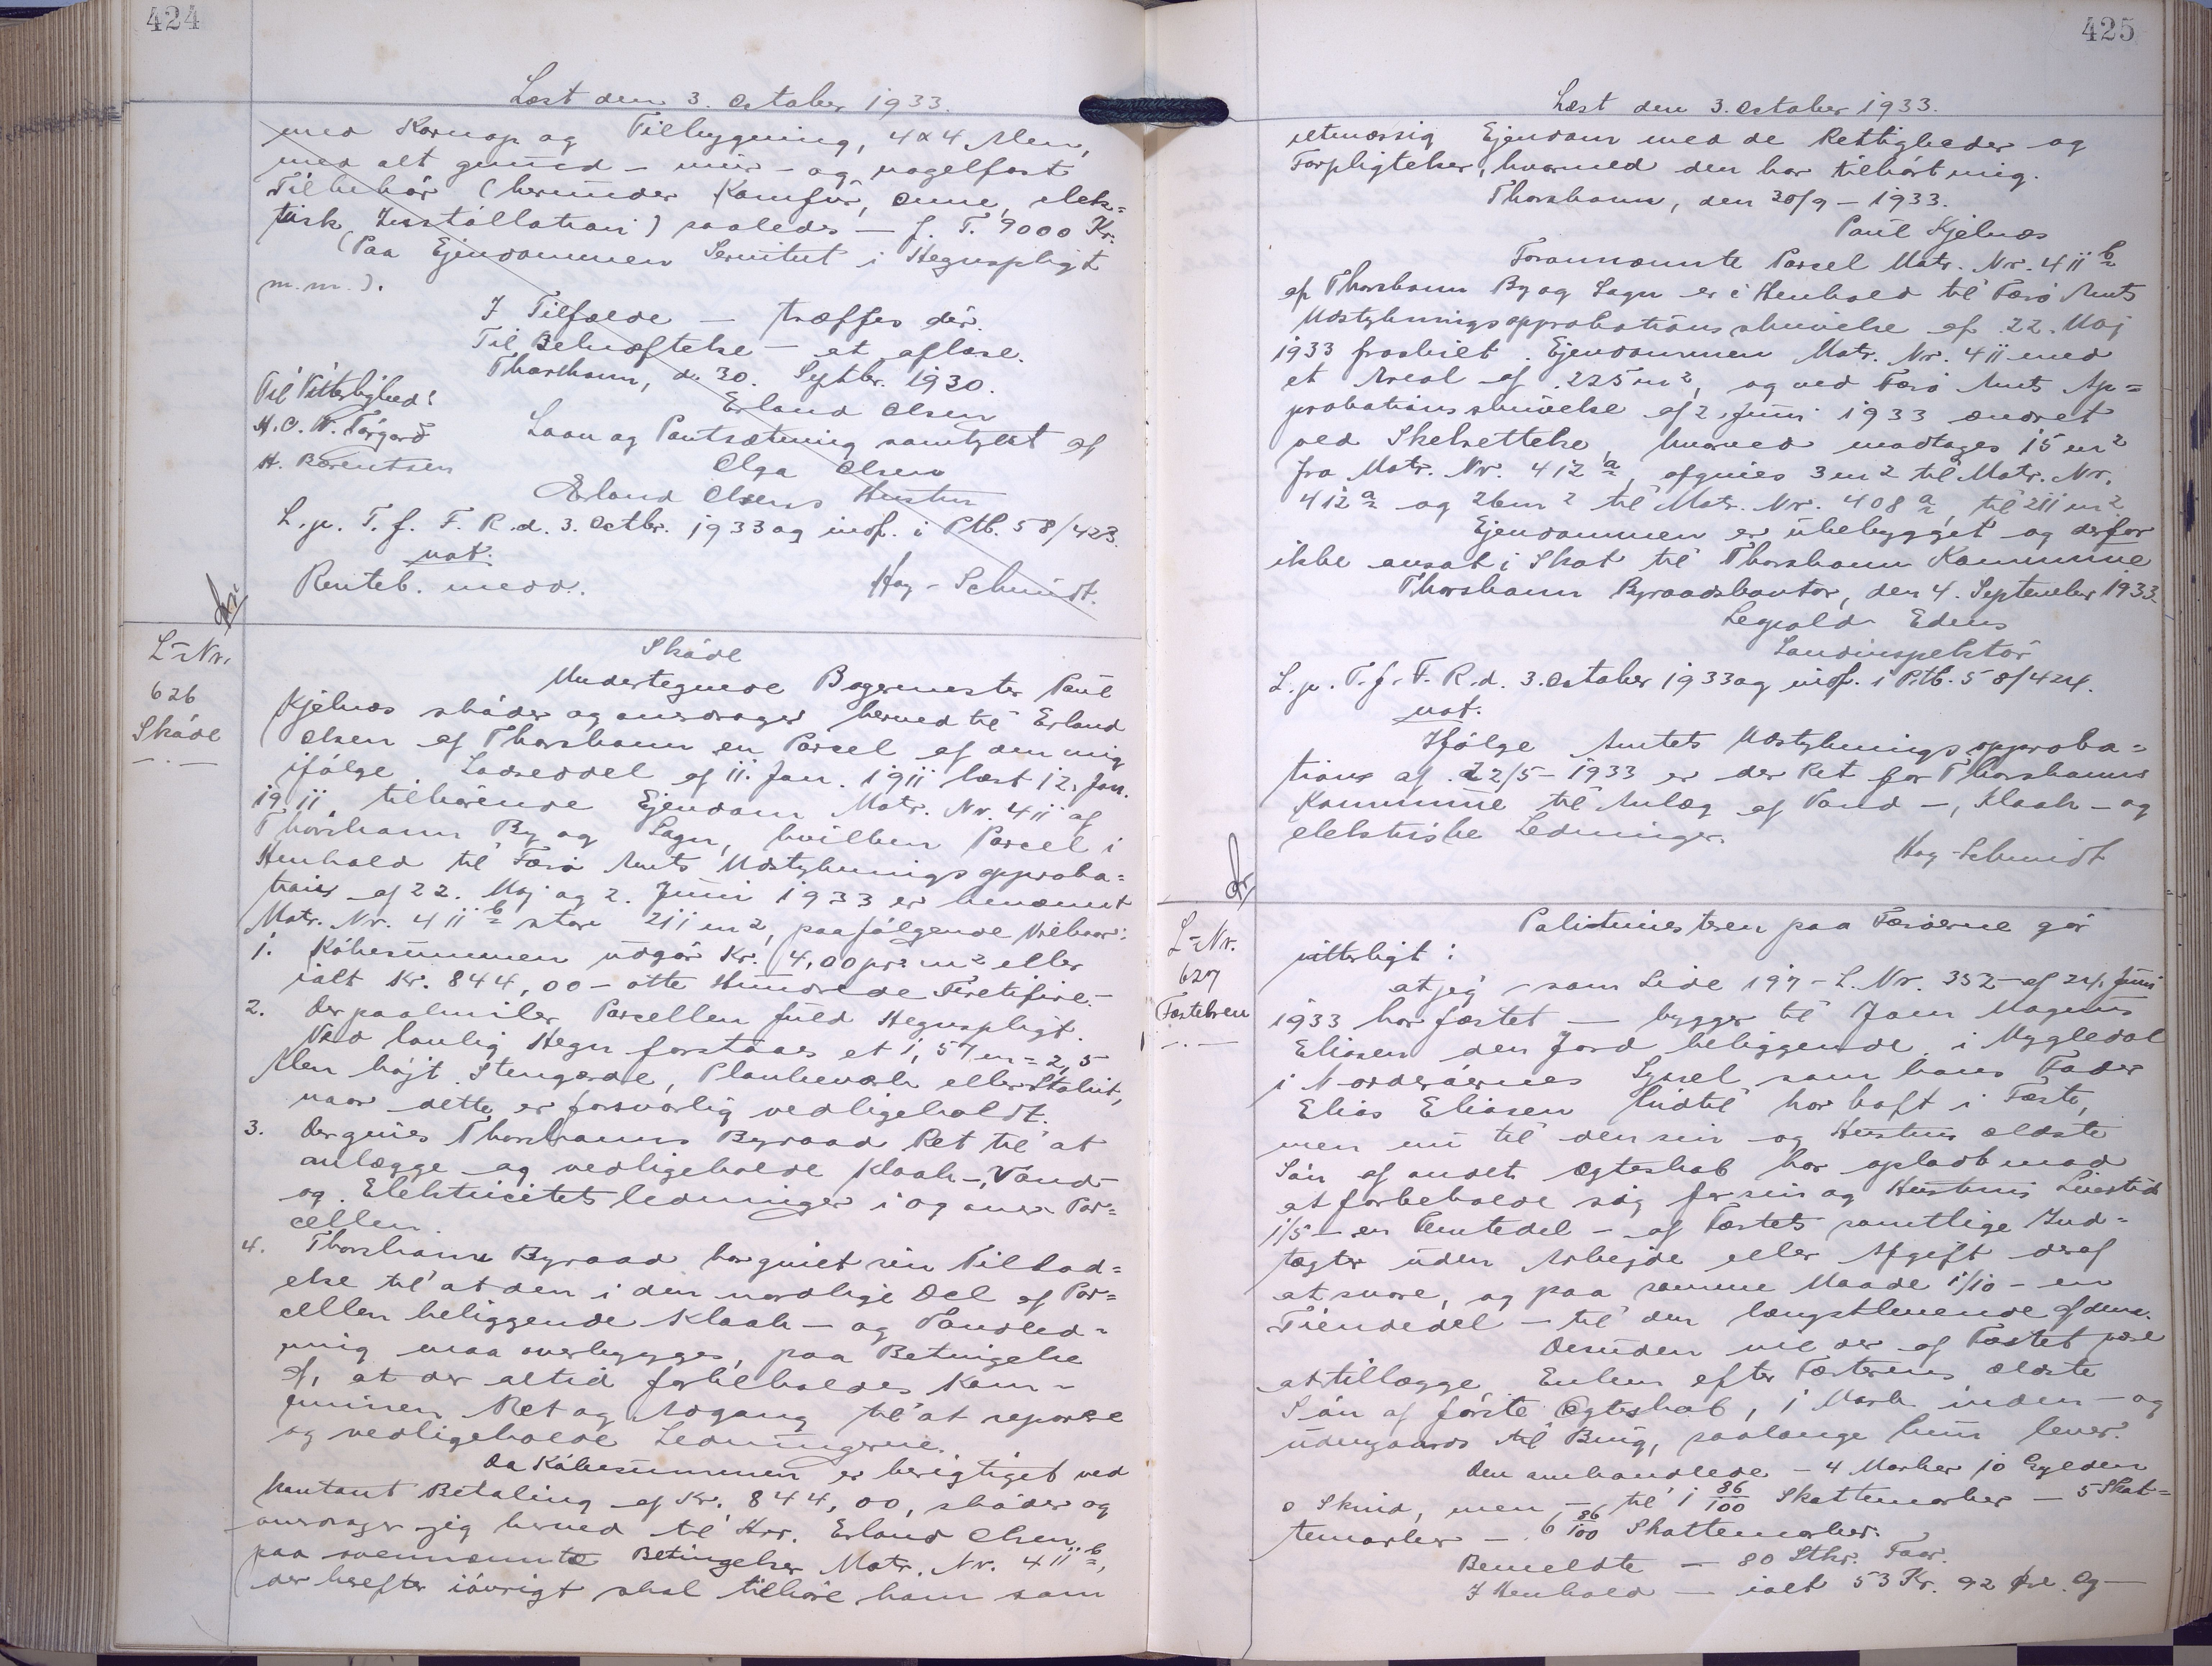 424
Læst den 3. October 1933.
med Karnap og Tilbygning, 4x4 Alen,
med alt grund- mur- og nagelfast
Tilbehör (herunder Komfur, Ovne, elek=
trisk Installation) saaledes — f. T. 9000 Kr.
(Paa Ejendommen Servitut i Hegnspligt
m.m.).
I Tilfælde — træffes dér.
Til Bekræftelse — et aflæse.
Thorshavn, d. 30. Septbr. 1930.
Til Vitterlighed:
Erland Olsen
H. C. W. Tórgarð
Laan og Pantsætning samtykt af
H. Bærentsen
Olga Olsen
Erland Olsens Hustru
L. p. T. f. F. R. d. 3. Octbr. 1933 og indf. i Ptb. 58/423.
not.
Renteb. medd.
Hag-Schmidt.
L-Nr.
626
Sköde
Sköde
Undertegnede Bagermester Paul
Kjelnæs sköder og overdrager herved til Erland
Olsen af Thorshavn en Parcel af den mig
ifölge Lodseddel af 11. Jan. 1911 læst 12. Jan.
1911, tilhörende Ejendom Matr. Nr. 411 af
Thorshavn By og Sogn, hvilken Parcel i
Henhold til Færö Amts Udstykningsapproba=
tion af 22. Maj og 2. Juni 1933 er benævnt
Matr. Nr. 411 b stor 211 m2, paa fölgende Vilkaar:
1. Köbesummen udgör Kr. 4,00 pr. m2 eller
ialt Kr. 844,00 – otte Hundrede Firetifire.–
2. Der paahviler Parcellen fuld Hegnspligt.
Ved lovlig Hegn forstaaes et 1,57 m = 2,5
Alen höjt Stengærde, Plankeværk eller Stakit,
naar dette er forsvarlig vedligeholdt.
3. Der gives Thorshavns Byraad Ret til at
anlægge og vedligeholde Kloak-, Vand-
og Elektricitetsledninger i og over Par=
cellen.
4. Thorshavn Byraad har givet sin Tillad=
else til at den i den nordlige Del af Par=
cellen beliggende Kloak- og Vandled=
ning maa overbygges, paa Betingelse
af, at der altid forbeholdes Kom=
munen Ret og Adgang til at reparere
og vedligeholde Ledningerne.
Da Köbesummen er berigtiget ved
kontant Betaling af Kr. 844,00, sköder og
overdrager jeg herved til Hrr. Erland Olsen
paa ovennævnte Betingelser Matr. Nr. 411 b,
der herefter iövrigt skal tilhöre ham som
425
Læst den 3. October 1933.
retmæssig Ejendom med de Rettigheder og
Forpligtelser, hvormed den har tilhört mig.
Thorshavn, den 20/9 – 1933.
Paul Kjelnæs
Foranævnte Parcel Matr. Nr. 411 b
af Thorshavn By og Sogn er i Henhold til Færö Amts
Udstykningsapprobationsskrivelse af 22. Maj
1933 fraskilt Ejendommen Matr. Nr. 411 med
et Areal af 225 m2, og ved Færö Amts Ap=
probationsskrivelse af 2. Juni 1933 ændret
ved Skelsettelse hvorved modtages 15 m2
fra Matr. Nr. 412 a, afgives 3 m2 til Matr. Nr.
412 a og 26 m2 til Matr. Nr. 408 a, til 211 m2
Ejendommen er ubebygget og derfor
ikke ansat i Skat til Thorshavn Kommune
Thorshavn Byraadskontor, den 4. September 1933.
Legvald Edens
Landinspektör
L. p. T. f. F. R. d. 3. October 1933 og indf. i Ptb. 58/424.
not.
Ifölge Amtets Udstykningsapproba=
tion af 22/5 – 1933 er der Ret for Thorshavns
Kommune til Anlæg af Vand-, Kloak- og
elektriske Ledninger.
Hag-Schmidt
L-Nr.
627
Fæstebrev
Politimesteren paa Færöerne gör
vitterligt:
at jeg – som Side 197 – L. Nr. 352 – af 24. Juni
1933 har fæstet — bygger til Joen Magnus
Eliasen den Jord beliggende i Myggledal
i Norderöernes Syssel som hans Fader
Elias Eliasen hidtil har haft i Fæste,
men nu til den sin og Hustrus ældste
Sön af andet Ægteskab har opladt mod
at forbeholde sig for sin og Hustrus Livstid
1/5 – en Femtedel – af Fæstets samtlige Ind=
tægter uden Arbejde eller Afgift deraf
at svare, og paa samme Maade 1/10 – en
Tiendedel – til den længstlevende af dem.
Desuden vil der af Fæstet være
at tillægge Enken efter Fæsterens ældste
Sön af förste Ægteskab, 1 Mark inden- og
udengaards til Brug, saalænge hun lever.
Den omhandlede – 4 Marker 10 Gylden
0 Skind, men — til 1 86/100 Skattemarker — 5 Skat=
temarker — 6 86/100 Skattemarker.
Bemeldte — 80 Stkr. Faar.
I Henhold — ialt 53 Kr. 92 Öre. Og —